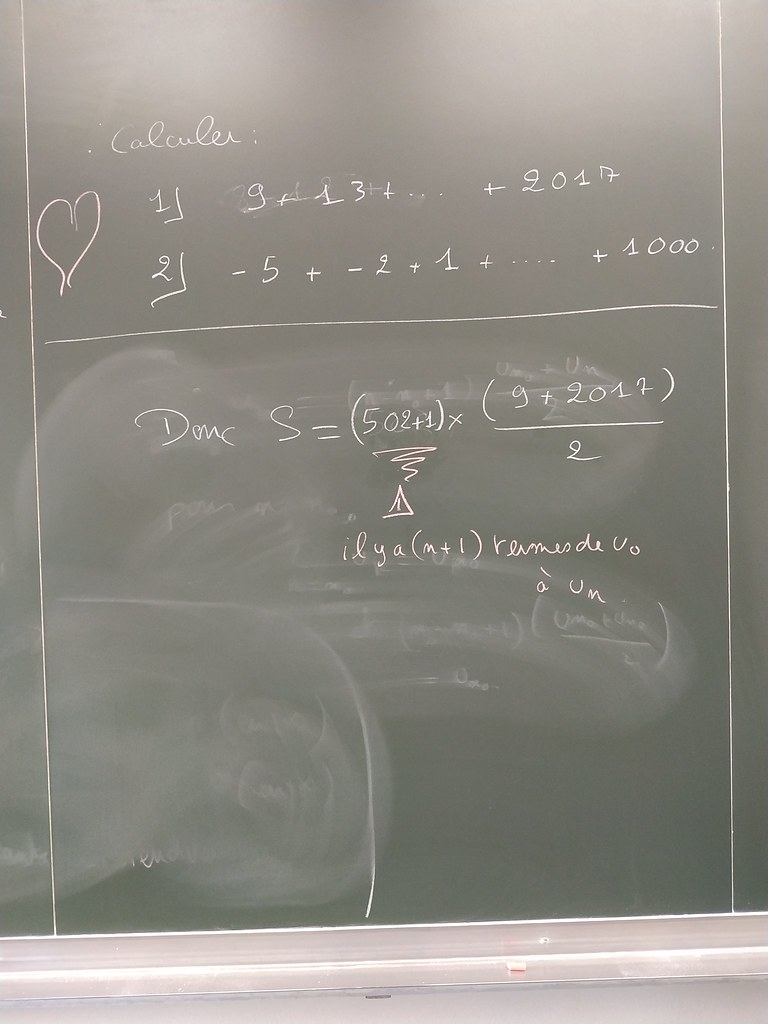 Calculer :
1) 9 + 13 + .... + 2017
2) -5 + -2 + 1 + ..... + 1000.
Donc S = (502+1) × (9 + 2017) / 2
il y a (n+1) termes de u0
à un.